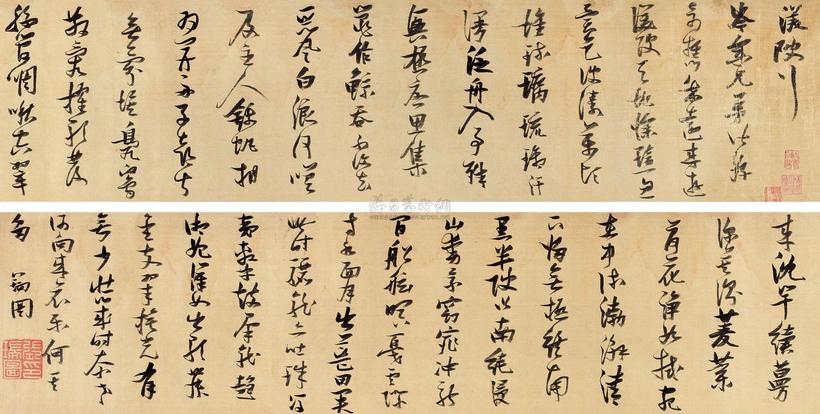 渼陂行
岑參兄弟皆好
奇攜我遠來遊
渼陂天地黤慘忽異
色波濤萬頃
堆琉璃琉璃汗
漫泛舟入事殊
興極憂思集
鼉作鯨吞不復知
惡風白浪何嗟
及主人錦帆相
為開舟子喜甚
無氛埃鳧鷖
散亂櫂歌發
絲管啁啾空翠
來沈竿續蔓
深莫測菱葉
荷花淨如拭宛
在中流渤澥清
下歸無極終南
黑半陂以南純浸
山動影窈窕冲融
間船舷暝戛雲際
寺水面月出藍田關
此時驪龍亦吐珠馮
夷擊鼓群龍趨
湘妃漢女出歌舞
金支翠旗光有
無少壯幾時奈老
何向來哀樂何其
多 瑞圖